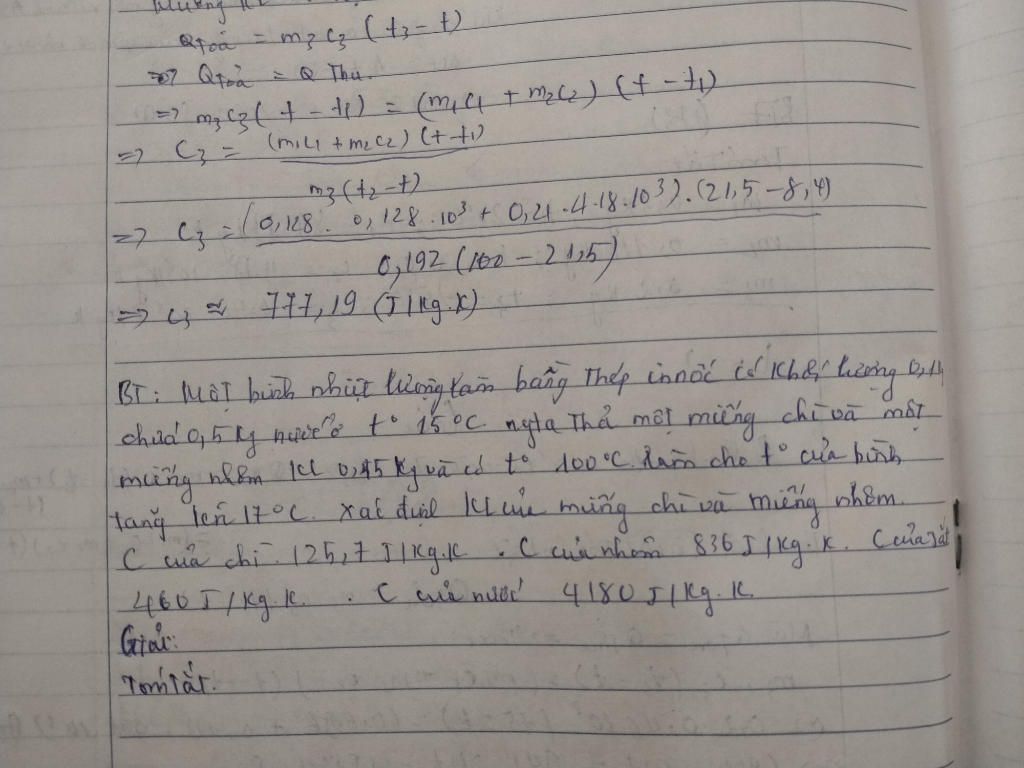 Qtoả = m3 c3 (t3 - t)
=> Qtoả = Q Thu.
=> m3c3 (t - t1) = (m1c1 + m2c2) (t - t1)
=> C3 = (m1c1 + m2c2) (t - t1)
m3 (t2 - t)
=> C3 = (0,128 . 0,128 . 10³ + 0,21 . 4.18.10³) . (21,5 - 8,4)
0,192 (100 - 21,5)
=> c3 ≈ 777,19 (J/kg.K)
BT: Một bình nhiệt lượng bằng Thép có Khối lượng
chứa 0,5 kg nước ở t° 15°C ngta Thả một miếng chì và một
miếng nhôm kl 0,45 kg và có t° 100°C làm cho t° của bình
tăng lên 17°C. xác định kl của miếng chì và miếng nhôm.
C của chì 125,7 J/kg.K . C của nhôm 836 J/kg.K. C của sắt
460 J/kg.K. . C của nước 4180 J/kg.K
Giải:
Tóm Tắt: